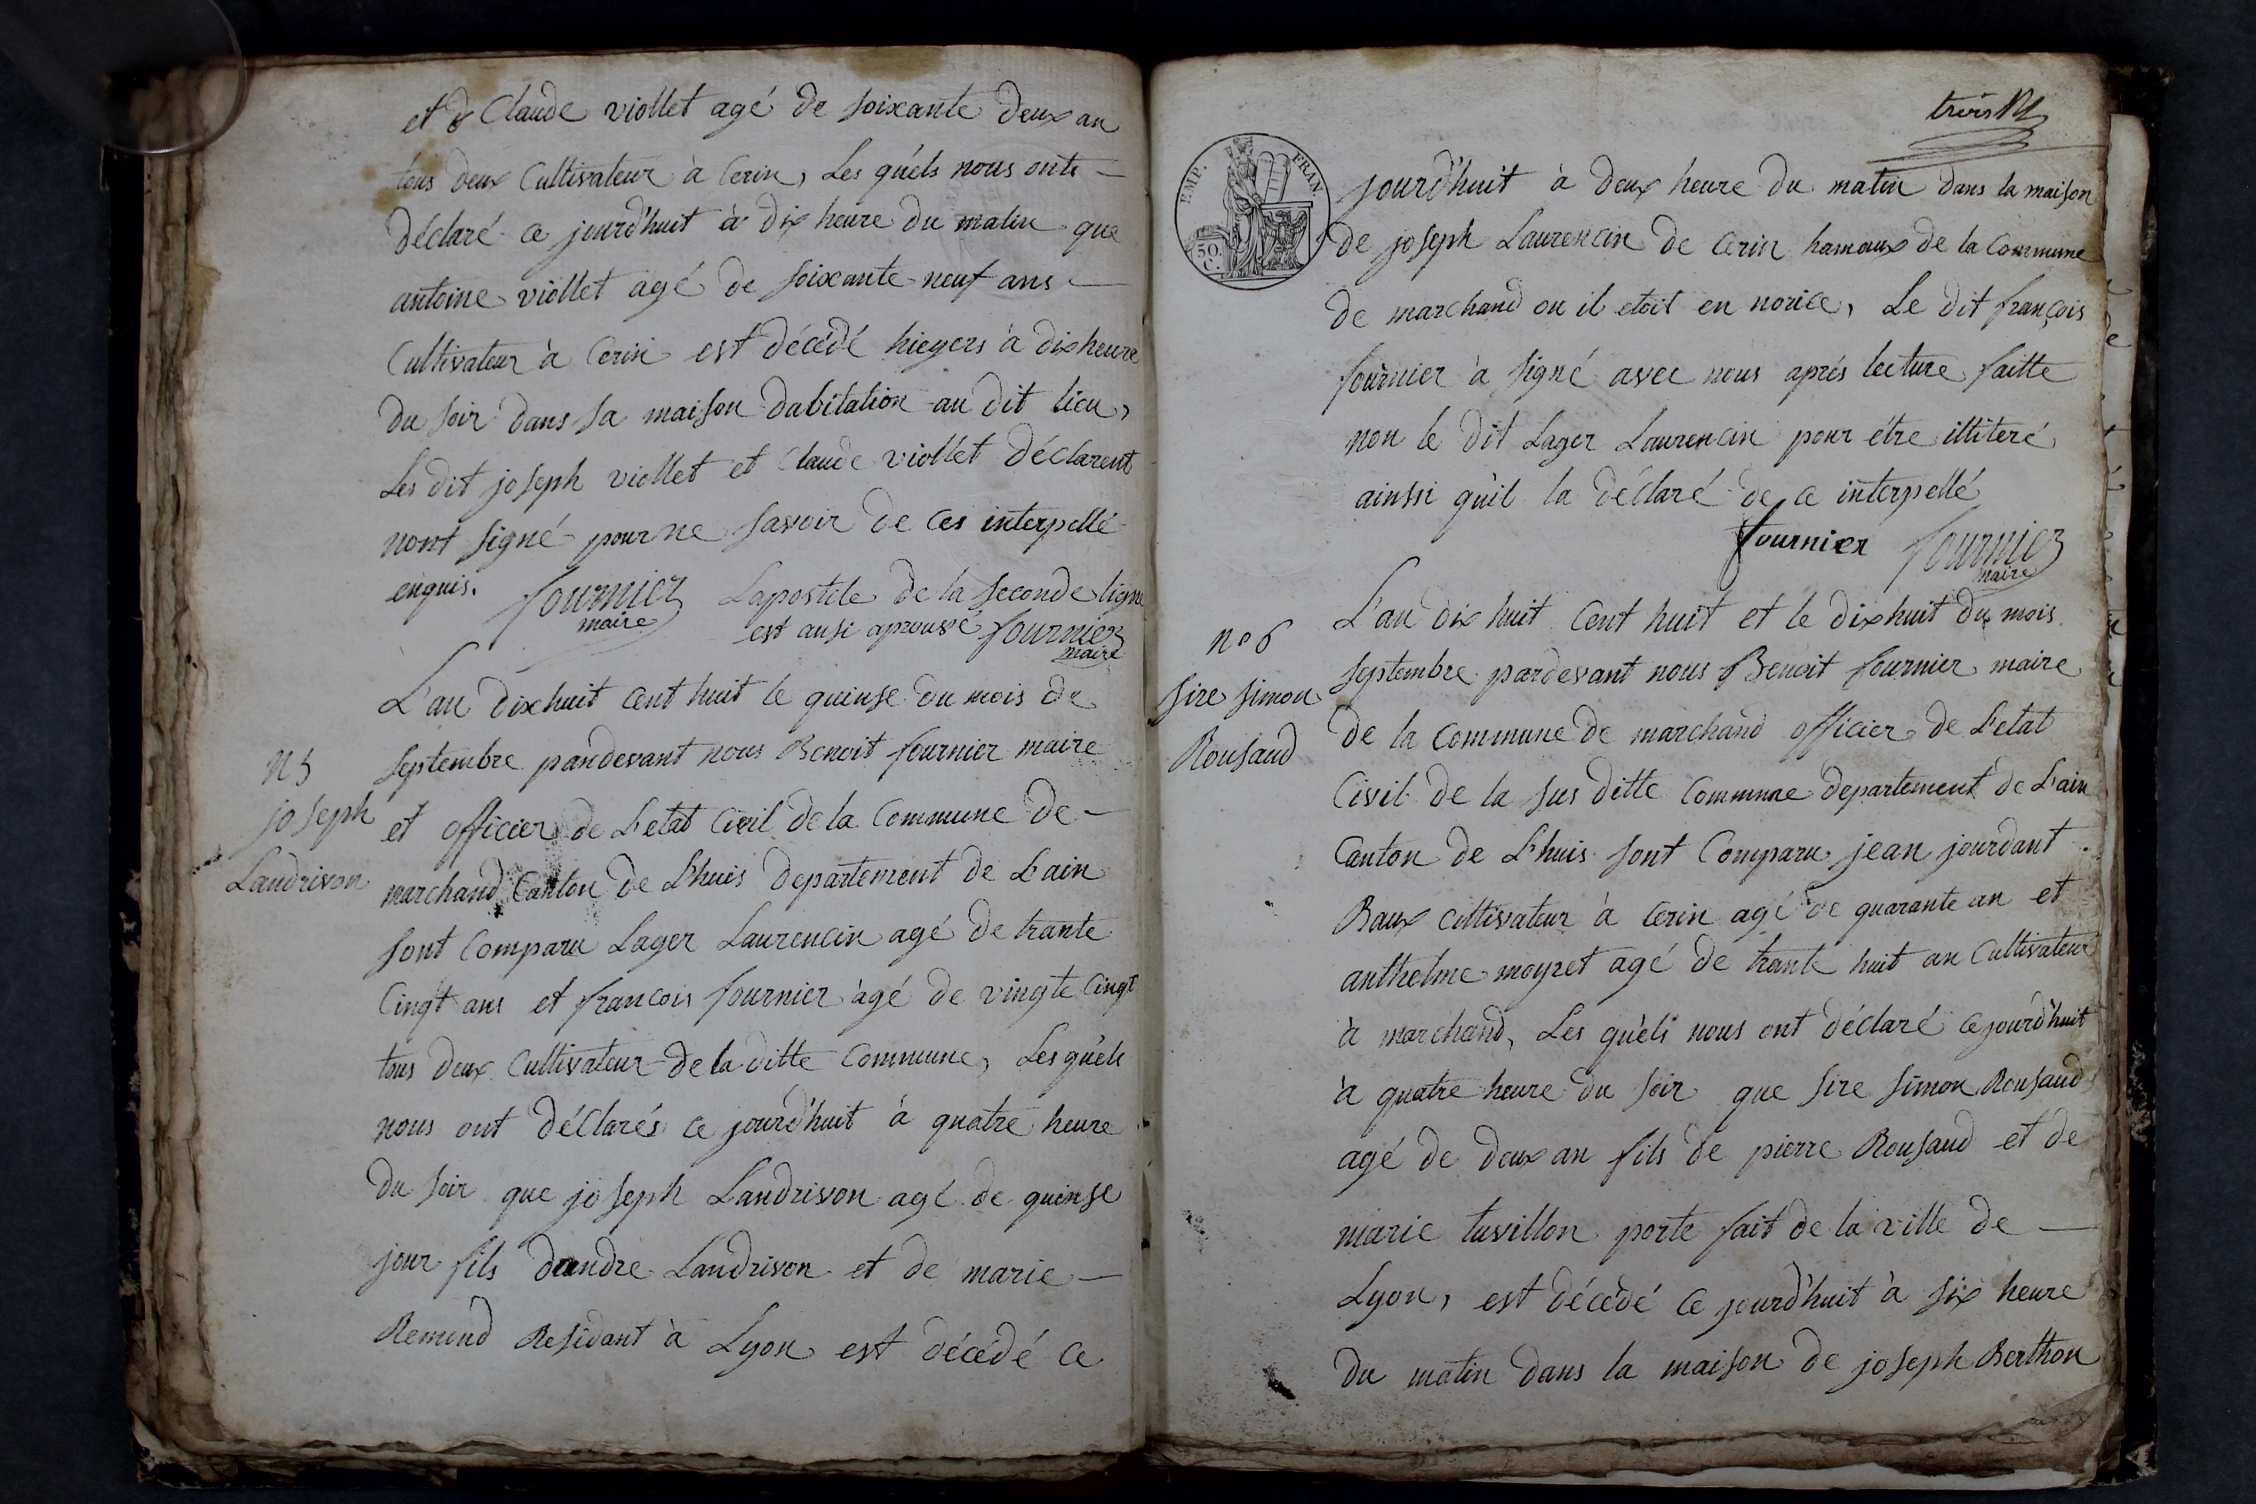 et de Claude viollet agé de soixante deux an
tous deux Cultivateur à Cerin, Les qu'els nous onts
déclaré ce jourd'huit à dix heure du matin que
antoine viollet agé de soixante neuf ans
Cultivateur à Cerin est décédé hiegers à dix heure
du soir dans sa maison dabitation au dit lieu,
Les dit joseph viollet et Claude viollet déclarent
nont signé pour ne savoir de ces interpellé
enquis. fournier Lapostile de la seconde ligne
maire est ausi aprouvé fournier
maire
L'an dix huit cent huit le quinse du mois de
N 5
septembre pardevant nous Benoit fournier maire
joseph
et officier de L'etat Civil de la Commune de
Landrivon
marchand Canton de L'huis departement de L'ain
sont Comparu Lager Laurencin agé de trante
Cingt ans et francois fournier agé de vingte Cingt
tous deux Cultivateur de la ditte Commune, Les qu'els
nous ont déClarés ce jourd'huit à quatre heure
du soir que joseph Landrivon agé de quinse
jour fils dandre Landrivon et de marie
Remond Residant à Lyon est décédé ce
trois
EMP. FRAN
50.
C.
jourd'huit à deux heure du matin dans la maison
de joseph Laurencin de Cerin hamaux de la Commune
de marchand ou il etoit en norice, Le dit françois
fournier à signé avec nous aprés lecture faitte
non le dit Lager Laurencin pour étre illiteré
ainssi qu'il la déclaré de ce interpellé
fournier fournier
maire
L'an dix huit Cent huit et le dix huit du mois
n° 6
septembre pardevant nous Benoit fournier maire
sire simon
de la Commune de marchand officier de L'etat
Rousaud
Civil de la sus ditte Commune departement de L'ain
Canton de L'huis sont Comparu jean jourdant
Baux cultivateur à Cerin agé de quarante an et
anthelme moyret agé de trante huit an Cultivateur
à marchand, Les qu'els nous ont déclaré ce jourd'huit
à quatre heure du soir que sire simon Rousaud
agé de deux an fils de pierre Rousaud et de
marie tuvillon porte fait de la ville de
Lyon, est décédé ce jourd'huit à six heure
du matin dans la maison de joseph Berthon